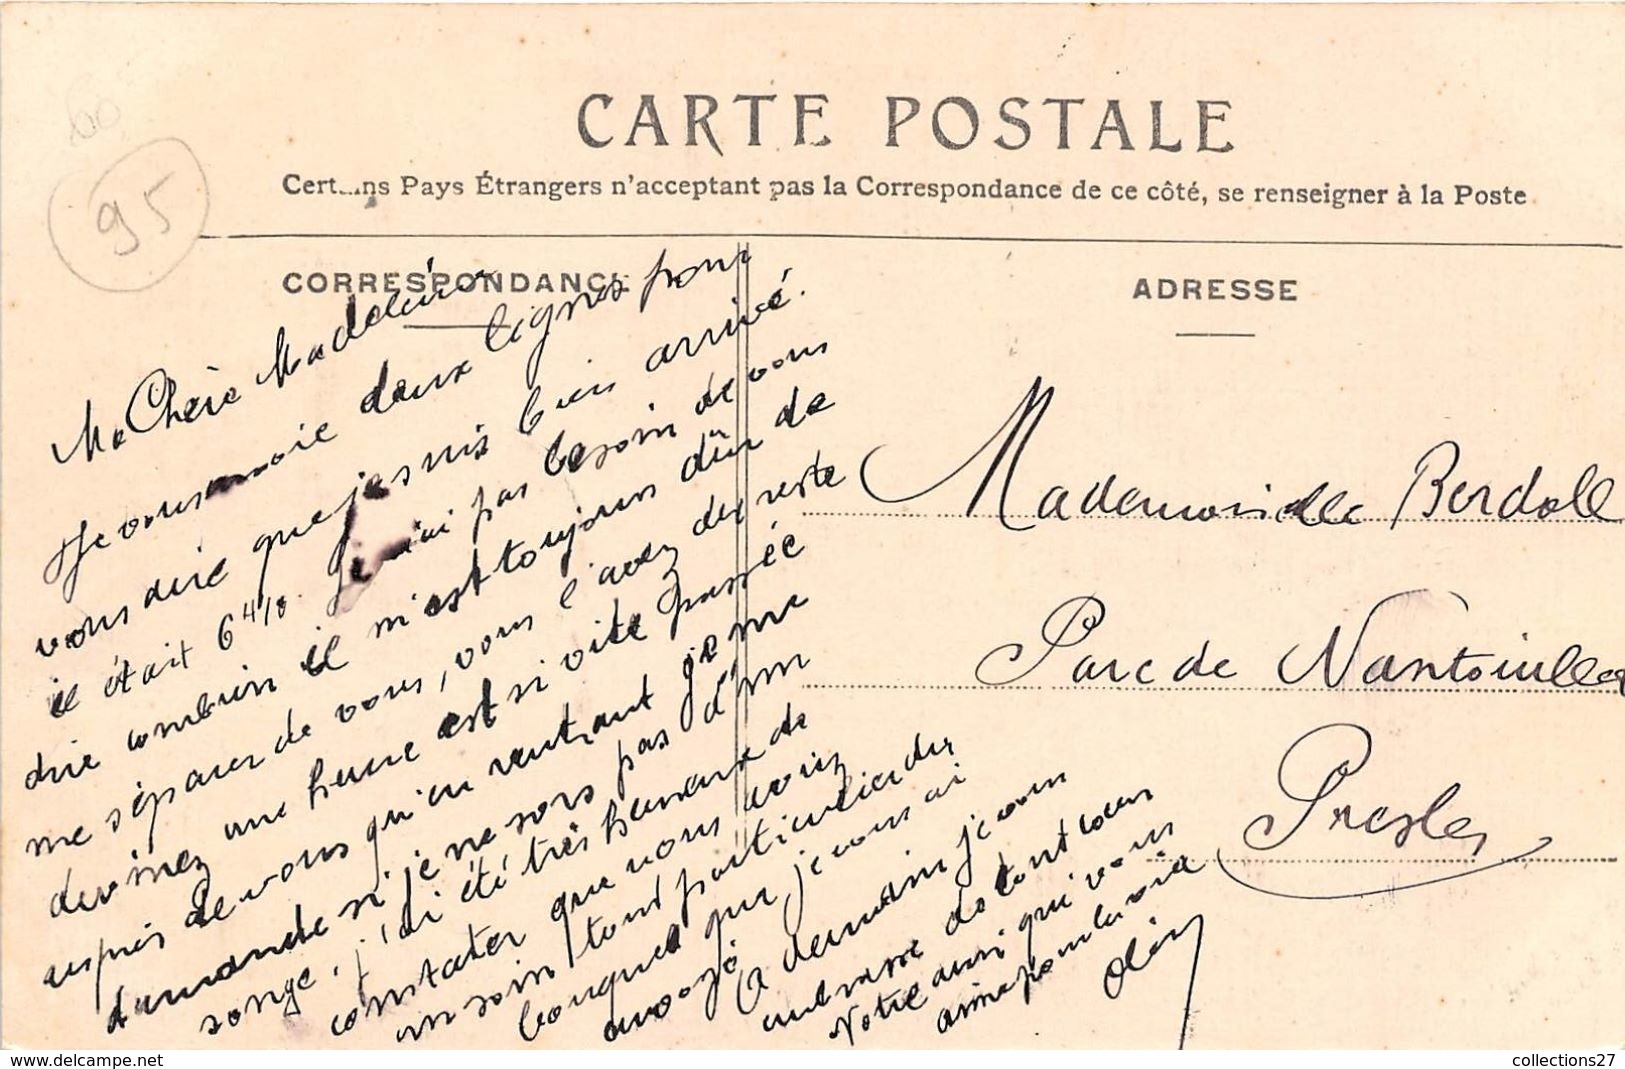 95
CARTE POSTALE
Certains Pays Étrangers n'acceptant pas la Correspondance de ce côté, se renseigner à la Poste
CORRESPONDANCE
Ma Chère Madeleine
Je vous envoie deux lignes pour
vous dire que je suis bien arrivé.
il était 6 4/8. Je n'ai pas besoin de vous
dire combien il m'est toujours dûr de
me séparer de vous, vous l'avez du reste
devinez une heure est si vite passée
auprès de vous qu'en rentrant je me
demande si je ne sors pas d'un
songe. j'ai été très heureux de
constater que vous aviez
un soin tout particulier du
bouquet que je vous ai
envoyé
A demain je vous
embrasse de tout coeur
Votre ami qui vous
aime pour la vie
ADRESSE
Mademoiselle Berdoll
Parc de Nantouillet
Presles
collections27